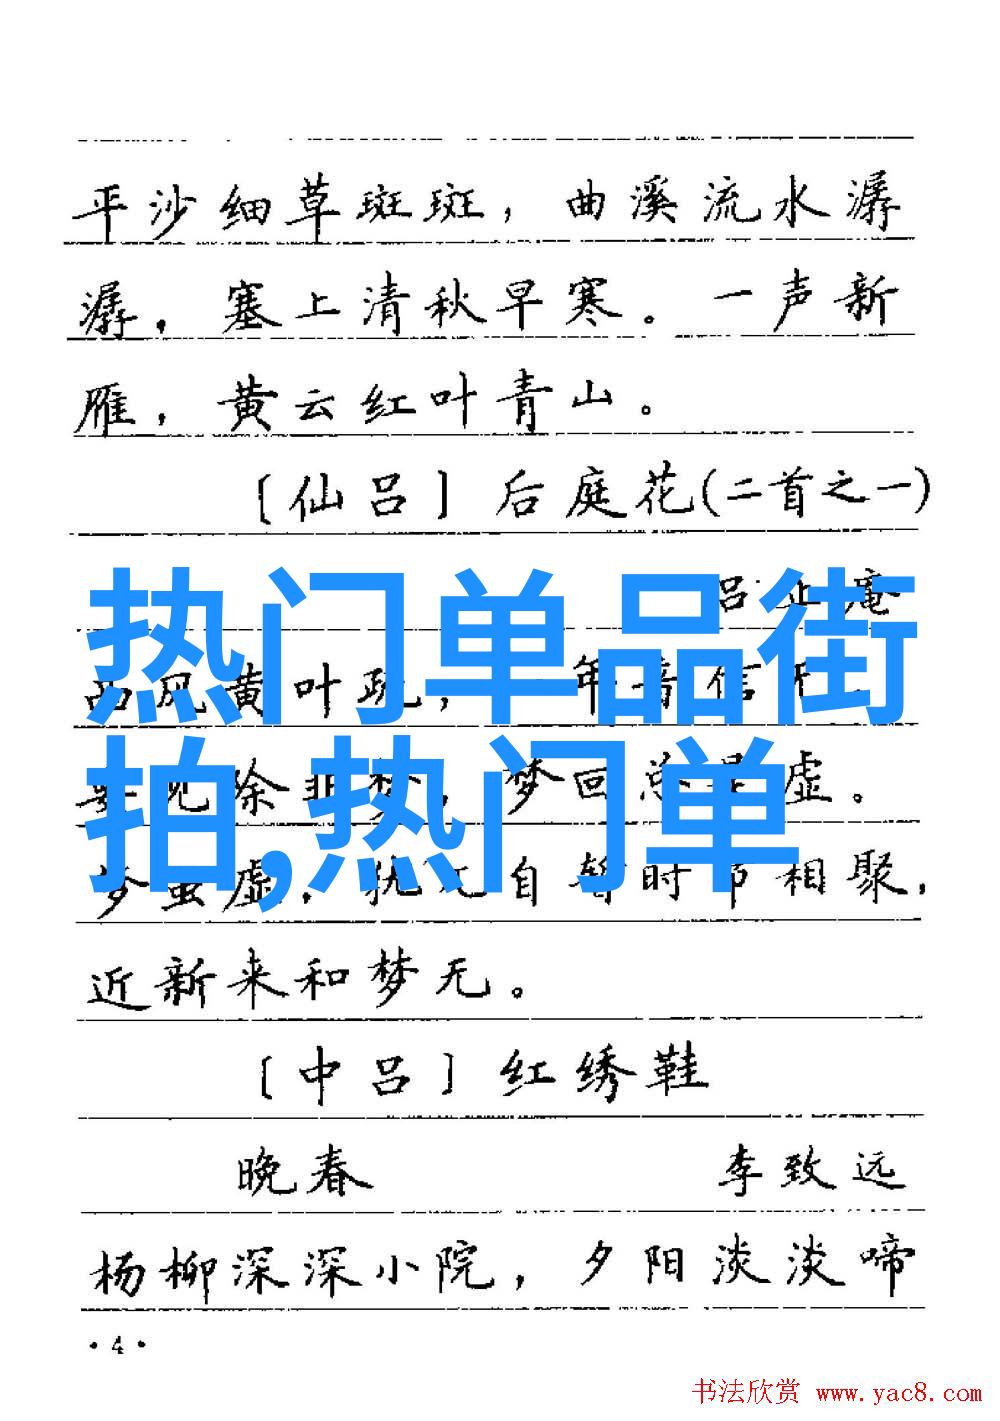 平沙细草斑斑，曲溪流水潺
潺，塞上清秋早寒。一声新
雁，黄云红叶青山。
〔仙吕〕后庭花(二首之一)
吕止庵
热门单品街
西风黄叶疏，一年音信无。
要见除非梦，梦回总是虚。
拍,热门单
梦虽虚，犹兀自暂时节相聚，
近新来和梦无。
〔中吕〕红绣鞋
晚春 李致远
杨柳深深小院，夕阳淡淡啼
·4·
书法欣赏 www.yac8.com